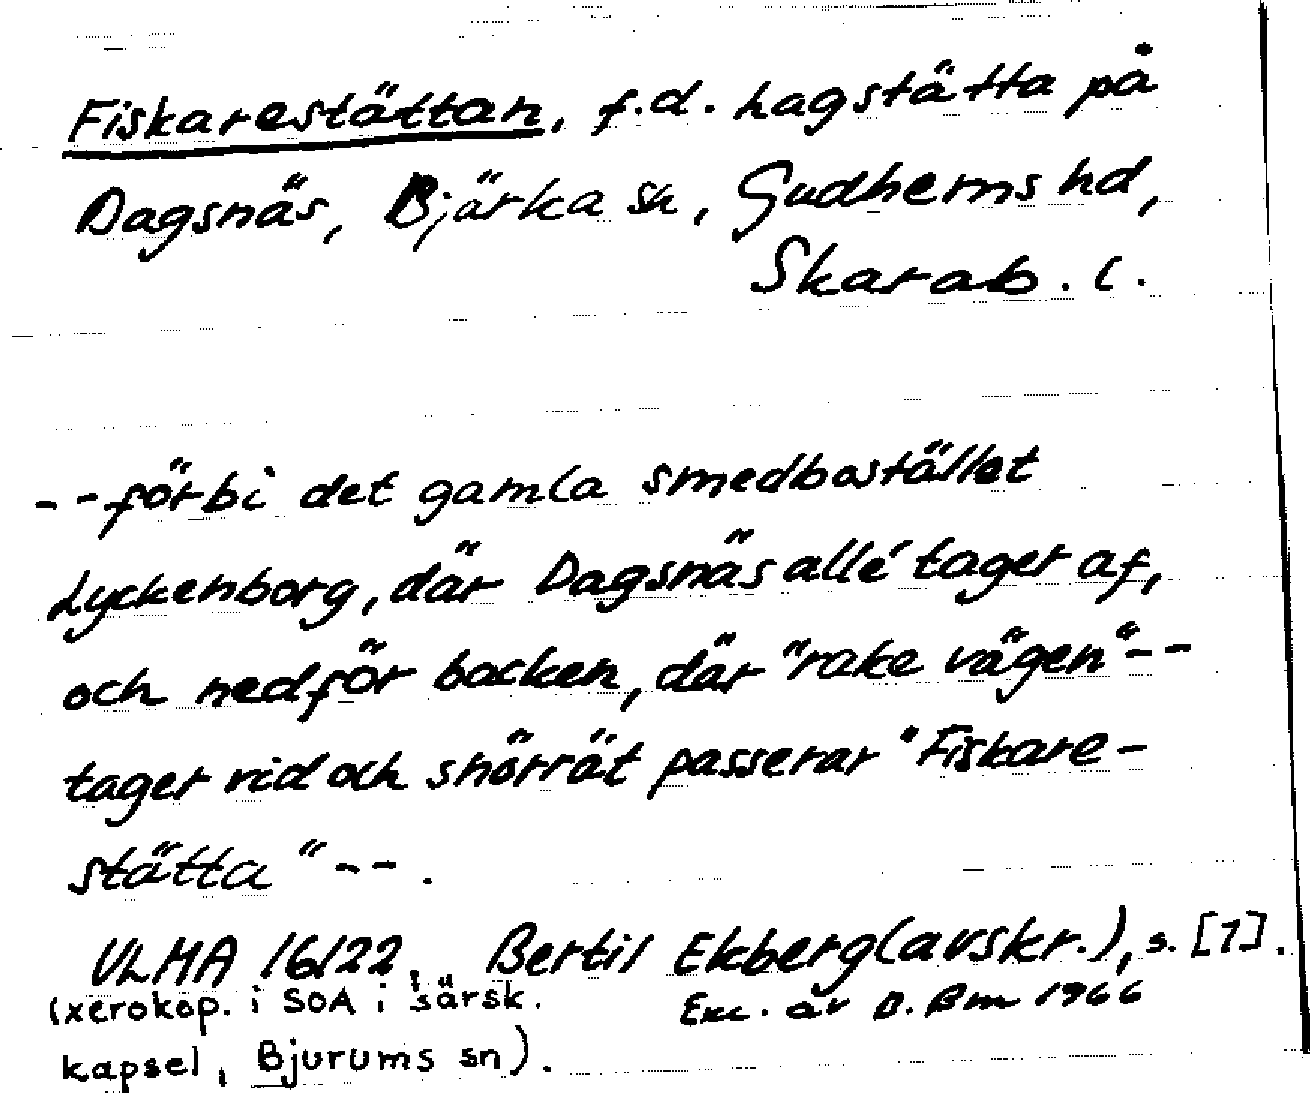 Fiskarestättan, f.d. hagstätta på
Dagsnäs, Bjärka sn, Gudhems hd,
Skarab. l.
--förbi det gamla smedbostället
Lyckenborg, där Dagsnäs allé tager af,
och nedför backen, där "rake vägen"--
tager vid och snörrät passerar "Fiskare-
stätta"--.
ULMA 16122, Bertil Ekberg(avskr.), s. [7].
(xerokop. i SOA i särsk.
Exc. av 1966
kapsel, Bjurums sn).